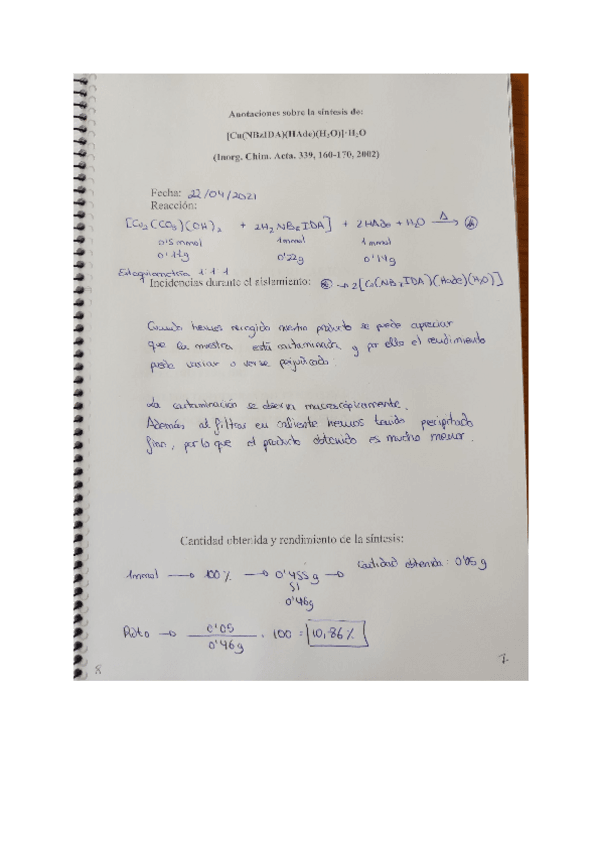 Anotaciones sobre la síntesis de:
[Cu(NBzIDA)(HAde)(H₂O)]·H₂O
(Inorg. Chim. Acta. 339, 160-170, 2002)
Fecha: 22/04/2021
Reacción:
[Cu₂(CO₃)(OH)₂ + 2H₂NBzIDA] + 2HAde + H₂O —Δ→ ⊛
0'5mmol 1mmol 1mmol
0'11g 0'22g 0'14g
Estequiometría 1 1 1
Incidencias durante el aislamiento: ⊛ → 2[Cu(NBzIDA)(Hade)(H₂O)]
Cuando hemos recogido nuestro producto se puede apreciar
que la muestra está contaminada y por ello el rendimiento
puede variar o verse perjudicado.
La contaminación se observa macroscópicamente.
Además al filtrar en caliente hemos tenido precipitado
fino, por lo que el producto obtenido es mucho menor.
Cantidad obtenida y rendimiento de la síntesis:
1mmol → 100% → 0'455g → Cantidad obtenida: 0'05g
0'46g
Rdto → 0'05 / 0'46g · 100 = 10,86%
8 7